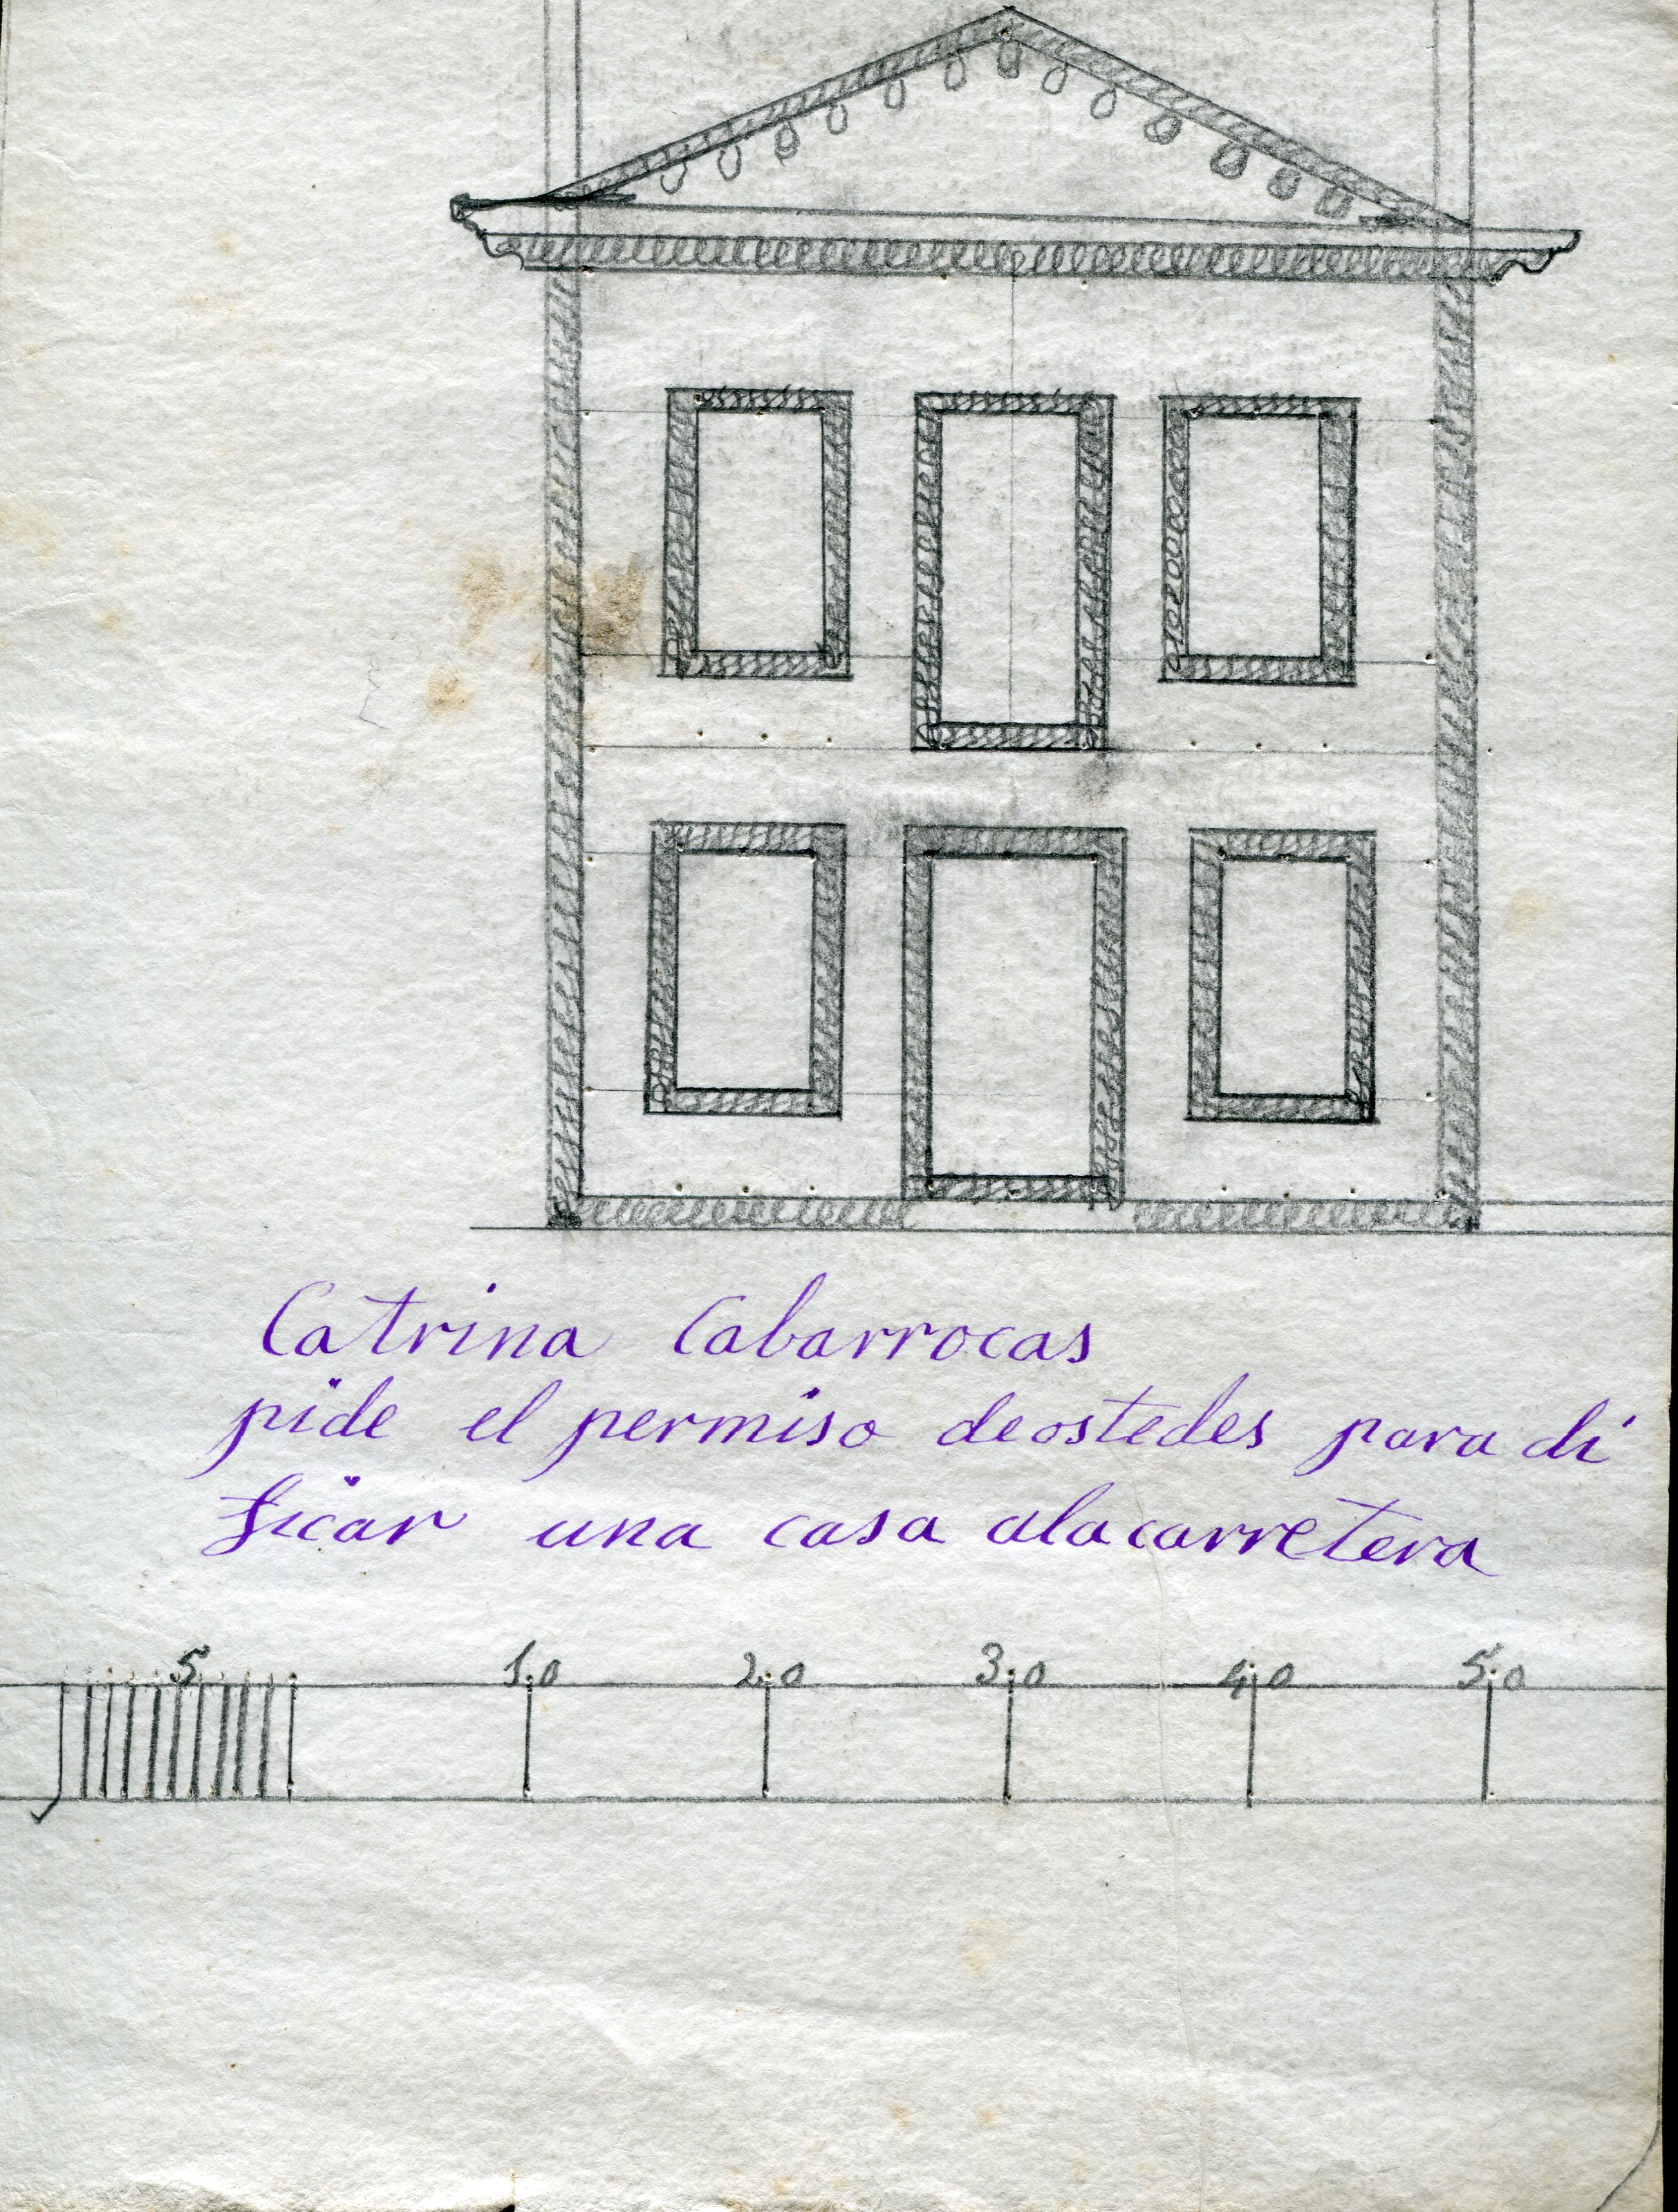 Catrina Cabarrocas
pide el permiso deostedes para di
ficar una casa alacarretera
5 1.0 2.0 3.0 4.0 5.0